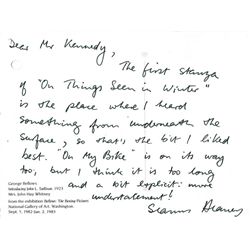 Dear Mr Kennedy,
The first stanza
of "On Things Seen in Winter"
is the place where I heard
something from underneath the
surface, so that's the bit I liked
best. "On My Bike" is on its way
too, but I think it is too long
and a bit explicit: more
understatement!
Seamus Heaney
George Bellows
Introducing John L. Sullivan 1923
Mrs. John Hay Whitney
from the exhibition Bellows: The Boxing Pictures
National Gallery of Art, Washington
Sept. 5, 1982-Jan. 2, 1983